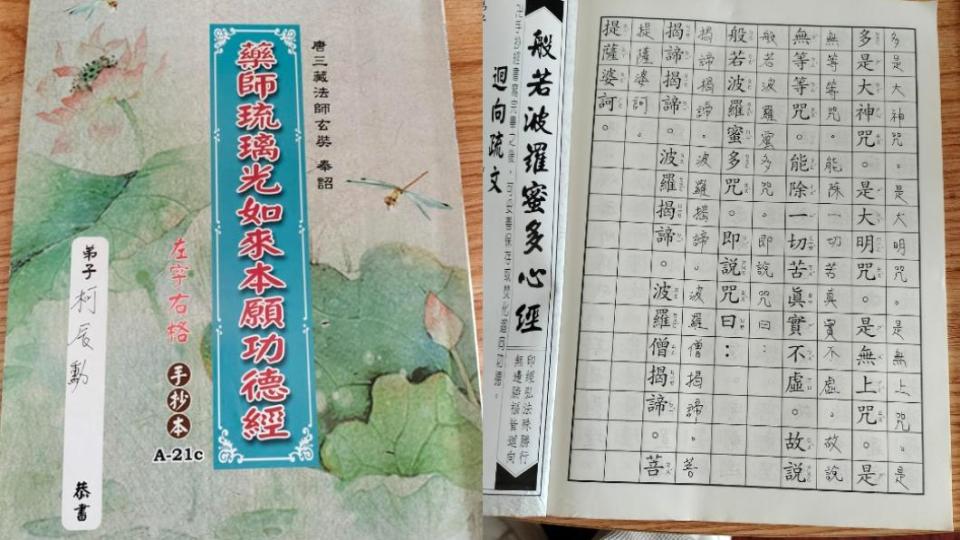 唐三藏法師玄奘 奉詔
藥師琉璃光如來本願功德經
左字右格
手抄本
A-21c
弟子 柯辰勳 恭書
多是大神咒。是大明咒。是無上咒。是
多是大神咒。是大明咒。是無上咒。是
無等等咒。能除一切苦真實不虛。故說
無等等咒。能除一切苦眞實不虛。故說
般若波羅蜜多咒。即說咒曰:
般若波羅蜜多咒。即說咒曰:
揭諦揭諦。波羅揭諦。波羅僧揭諦。菩
揭諦揭諦。波羅揭諦。波羅僧揭諦。菩
提薩婆訶。
提薩婆訶。
般若波羅蜜多心經
印經弘法殊勝行
無邊勝福皆迴向
迴向疏文